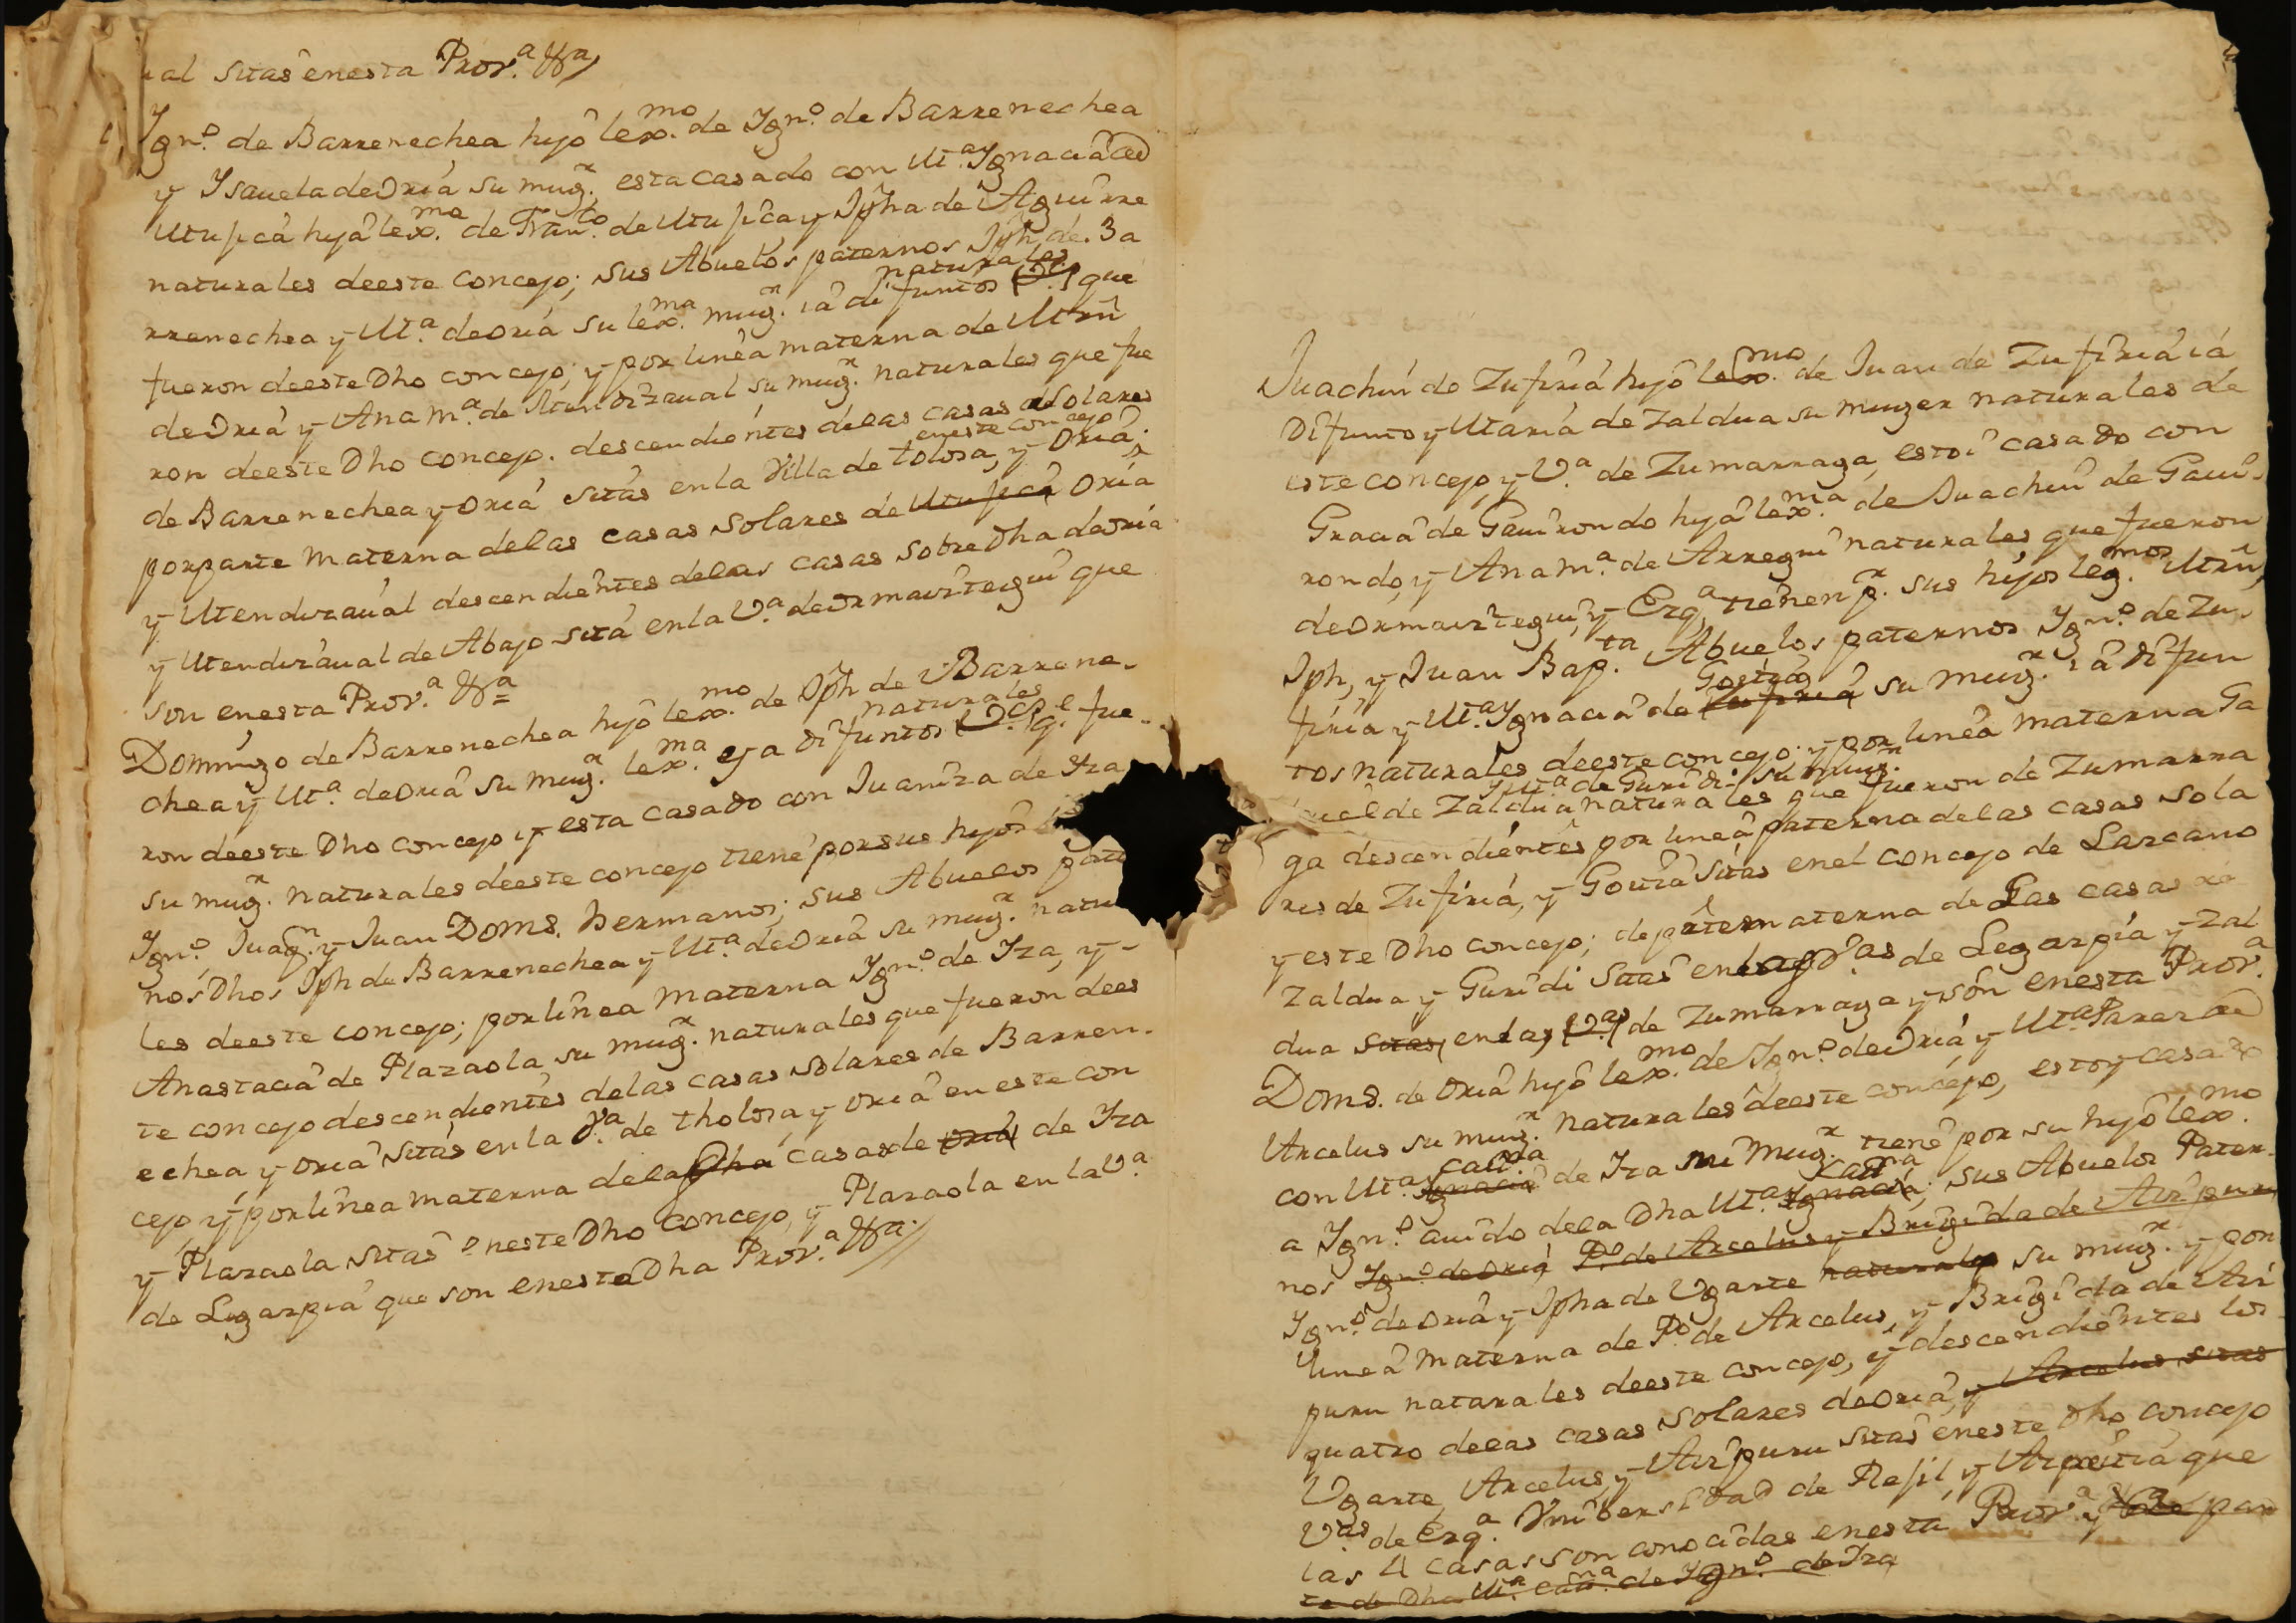 al sitas en esta Prov.ª &ª
Ygn.º de Barrenechea hijo lex.mo de Ygn.º de Barrenechea
y Ysauela de Oria su mug.r esta casado con M.ª Ygnacia
hija lex.ma de Fran.co de y Jpha de Aguirre
naturales de este concejo; sus Abuelos paternos Jph de Ba
naturales
rrenechea y M.ª de Oria su lex.ma mug.r ia difuntos que
fueron de este Dho concejo; y por linea materna de Mrñ
de Oria y Ana M.ª de su mug.r naturales que fue
ron de este Dho concejo. descendientes de las casas Solares
en este concejo
de Barrenechea y Oria sitas en la Villa de tolosa, y Oria
por parte materna de las casas Solares de Oria
y Mendizaual descendientes de las casas sobre Dha de oria
y Mendizaual de Abajo sita en la V.ª de ormaiztegui que
son en esta Prov.ª &ª
Domingo de Barrenechea hijo lex.mo de Jph de Barrene-
naturales
chea y M.ª de Oria su mug.r lex.ma ya difuntos q.e fue-
ron de este Dho concejo y esta casado con Juaniza de Iza
su mug.r naturales de este concejo tiene por sus hijos
Ygn.º Juaq.n y Juan Dom.º hermanos; sus Abuelos pate
nos Dhos Jph de Barrenechea y M.ª de Oria su mug.r natu
les de este concejo; por linea materna Ygn.º de Iza, y-
Anastacia de Plazaola su mug.r naturales que fueron de es
te concejo descendientes de las casas solares de Barren-
echea y oria sitas en la V.ª de tholosa y oria en este con
cejo, y por linea materna de la Dha casas de oria de Iza
y Plazaola sitas en este Dho concejo, y Plazaola en la V.ª
de Legazpia que son en esta Dha Prov.ª &ª
Juachin de Zufiria hijo lex.mo de Juan de Zufiria ia
Difunto y Maria de Zaldua su muger naturales de
este concejo, y V.ª de Zumarraga, estoi casado con
Gracia de Gauirondo hija lex.ma de Juachin de Gaui-
rondo, y Ana M.ª de Arregui naturales que fueron
de ormaiztegui, y Ezq.ª tienen p.r sus hijos leg.mos Mrñ,
Jph, y Juan Bap.ta Abuelos paternos Ygn.º de Zu-
firia y M.ª Ygnacia de su mug.r ia difun
tos naturales de este concejo; y por linea materna Ga
y M.ª de Guridi su mug.r
uel de Zaldua naturales que fueron de Zumarra
ga descendientes por linea paterna de las casas sola
res de Zufiria, y sitas en el concejo de Lazcano
y este Dho concejo; de p.te materna de las casas
Zaldua y Guridi sitas en las V.as de Legazpia y Zal
dua sitas en las V.as de Zumarraga y son en esta Prov.ª
Dom.º de Oria hijo lex.mo de Ygn.º de Oria y M.ª Perez de
Arcelus su mug.r naturales de este concejo, estoy casado
con M.ª Ygnacia de Iza mi mug.r tiene por su hijo lex.mo
a Ygn.º auido de la Dha M.ª Ygnacia; sus Abuelos Pater-
nos Ygn.º de Oria P.º de Arcelus y Brigida de Aizpuru
Ygn.º de Oria y Jpha de Ugarte naturales su mug.r y por
linea materna de P.º de Arcelus, y Brigida de Aiz
puru naturales de este concejo, y descendientes los
quatro de las casas solares de Oria, y Arcelus sitas
Ugarte, Arcelus, y Aizpuru sitas en este Dho concejo
V.as de Ezq.ª Vniversidad de Rexil, y Azpeitia que
las 4 casas son conocidas en esta Prov.ª y par
te de Dha M.ª de Ygn.º de Iza